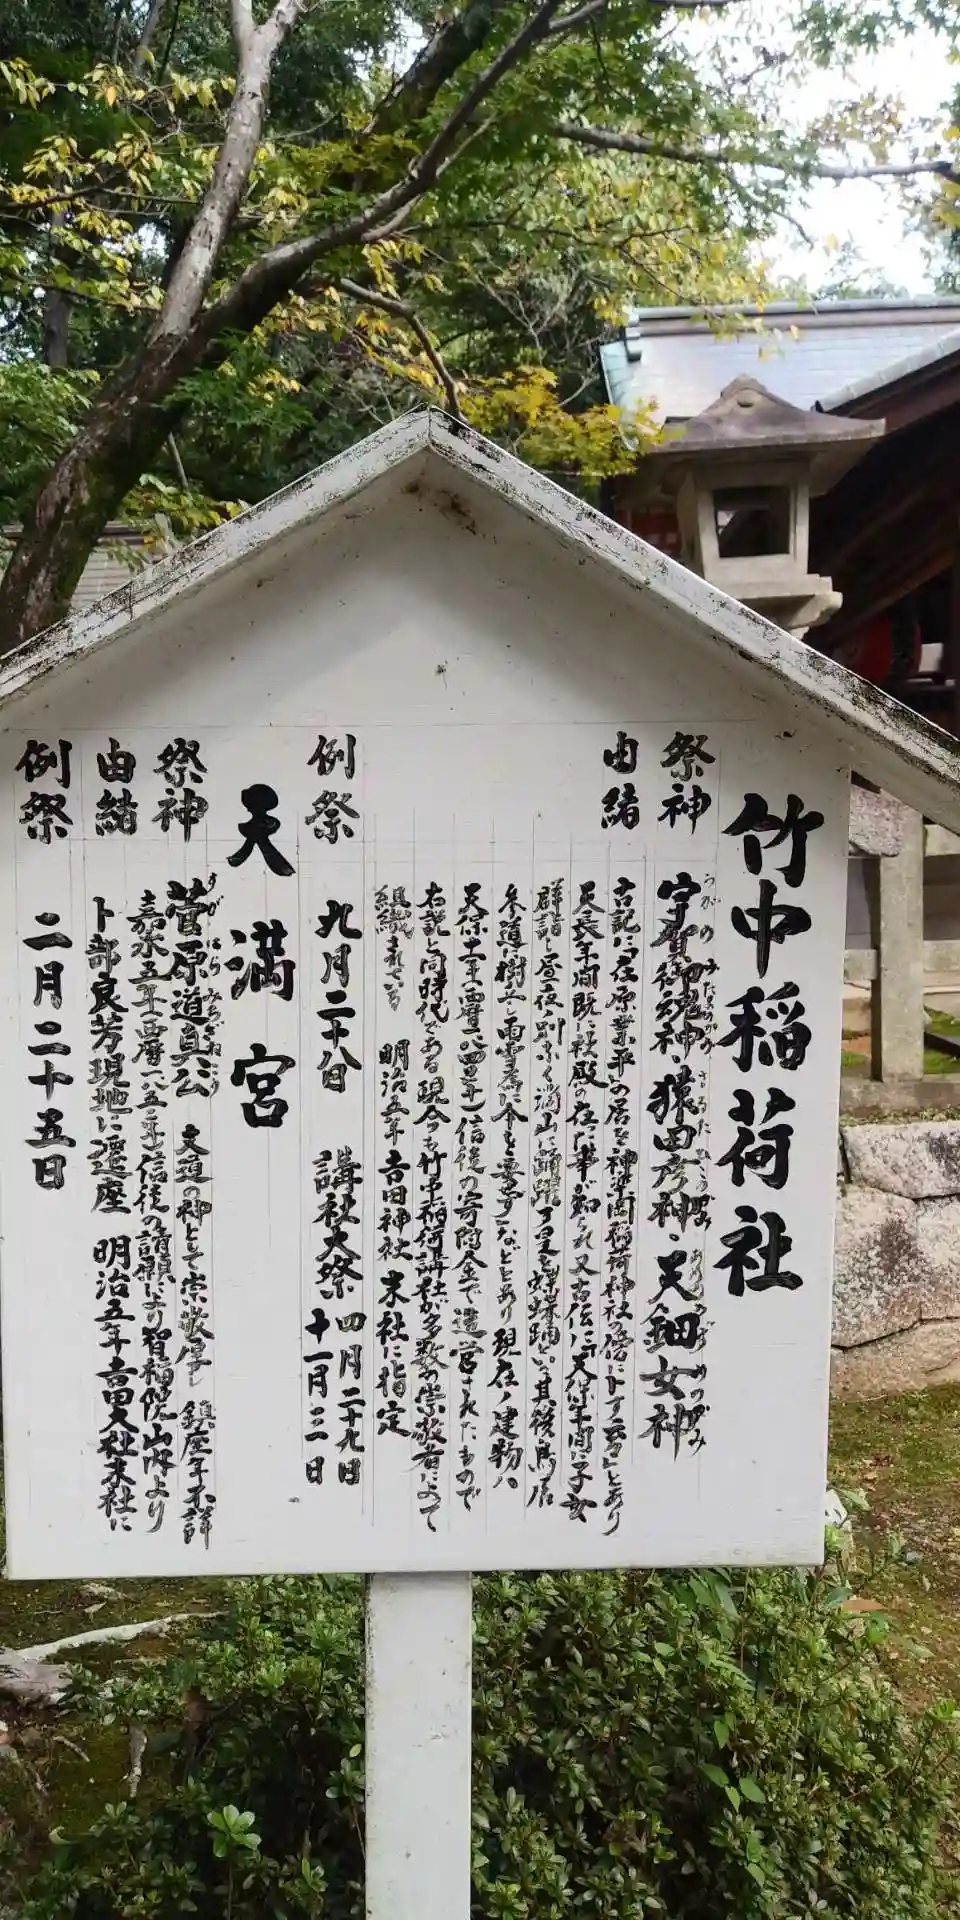 竹中稲荷社
祭神
宇賀御魂神・猿田彦神・天鈿女神
うがのみたまのかみ さるたひこのかみ あめのうずめのかみ
由緒
古記に「在原業平の居を神楽岡稲荷神社の傍に卜す云云」とあり
天長年間既に社殿の在った事が知られ又古伝に「天保年間に子女
群詣し昼夜ノ別なく満山に踊躍す是を蝶蝶踊といい其後鳥居
参道に樹立し雨雪為に傘を要せず」などとあり現在ノ建物ハ
天保十一年(西暦一八四〇年)信徒の寄附金で造営されたもので
右説と同時代である 現今も竹中稲荷講社が多数の崇敬者によって
組織されている 明治五年吉田神社末社に指定
例祭
九月二十八日 講社大祭 四月二十九日
十一月三日
天満宮
祭神
菅原道真公 文道の神として崇敬厚し 鎮座年不詳
すがはらみちざねこう
由緒
嘉永五年(西暦一八五二年)信徒の請願により智福院山内より
卜部良芳現地に遷座 明治五年吉田大社末社に
例祭
二月二十五日